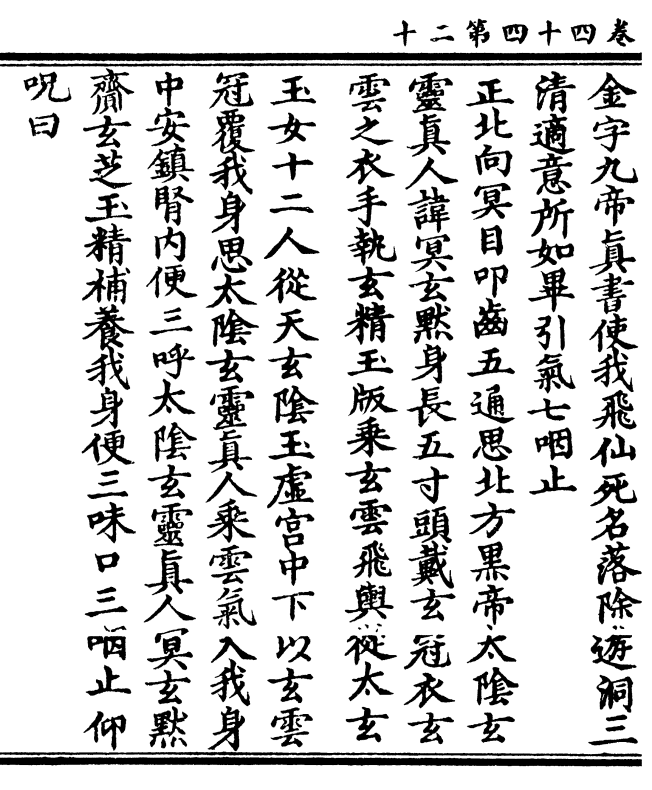 卷四十四第二十
金字九帝眞書使我飛仙死名落除遊洞三
清適意所如畢引氣七咽止
正北向冥目叩齒五通思北方黒帝太陰玄
靈眞人諱冥玄默身長五寸頭戴玄冠衣玄
雲之衣手執玄精玉版乘玄雲飛輿從太玄
玉女十二人從天玄陰玉虛宮中下以玄雲
冠覆我身思太陰玄靈眞人乘雲氣入我身
中安鎮腎内便三呼太陰玄靈眞人冥玄默
齎玄芝玉精補養我身便三味口三咽止仰
呪曰